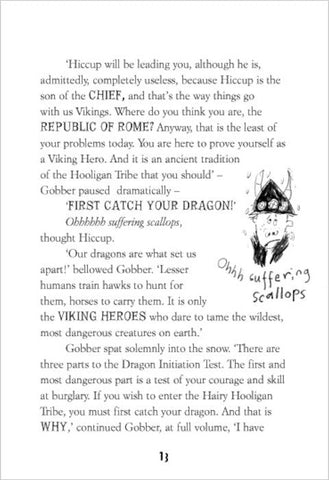 ‘Hiccup will be leading you, although he is,
admittedly, completely useless, because Hiccup is the
son of the CHIEF, and that’s the way things go
with us Vikings. Where do you think you are, the
REPUBLIC OF ROME? Anyway, that is the least of
your problems today. You are here to prove yourself as
a Viking Hero. And it is an ancient tradition
of the Hooligan Tribe that you should’ –
Gobber paused dramatically –
‘FIRST CATCH YOUR DRAGON!’
Ohhhhhh suffering scallops,
thought Hiccup.
‘Our dragons are what set us
apart!’ bellowed Gobber. ‘Lesser
humans train hawks to hunt for
them, horses to carry them. It is only
the VIKING HEROES who dare to tame the wildest,
most dangerous creatures on earth.’
Ohhh suffering
scallops
Gobber spat solemnly into the snow. ‘There are
three parts to the Dragon Initiation Test. The first and
most dangerous part is a test of your courage and skill
at burglary. If you wish to enter the Hairy Hooligan
Tribe, you must first catch your dragon. And that is
WHY,’ continued Gobber, at full volume, ‘I have
13